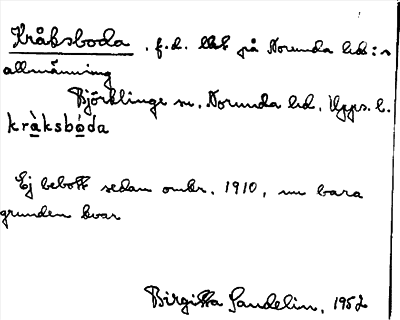 Kråksboda . f.d. lht på Norunda hd:s
allmänning
Björklinge sn, Norunda hd, Upps. l.
kràksbóda
Ej bebott sedan omkr. 1910, nu bara
grunden kvar
Birgitta Sandelin, 1952